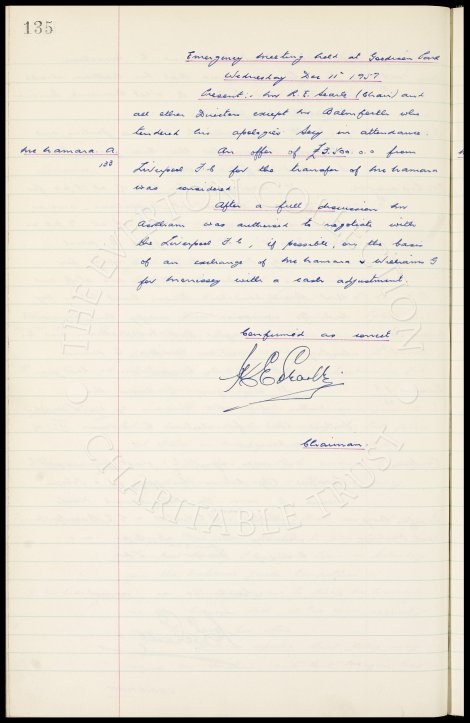 135
Emergency meeting held at Goodison Park
Wednesday Dec 11th 1957
Present :- Mr R. E. Searle (Chair) and
all other Directors except Mr Balmforth who
tendered his apologies Secy in attendance.
McNamara A.
133
An offer of £3.500.0.0 from
Liverpool F.C for the transfer of McNamara
was considered
After a full discussion Mr
was authorised to negotiate with
the Liverpool F.C, if possible, on the basis
of an exchange of McNamara & Williams G
for Morrissey with a cash adjustment.
Confirmed as correct
R E Searle
Chairman.
THE EVERTON COLLECTION
CHARITABLE TRUST